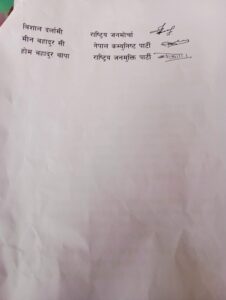 विशाल दर्लामी राष्ट्रिय जनमोर्चा
मीन बहादुर सी नेपाल कम्युनिष्ट पार्टी
होम बहादुर थापा राष्ट्रिय जनमुक्ति पार्टी